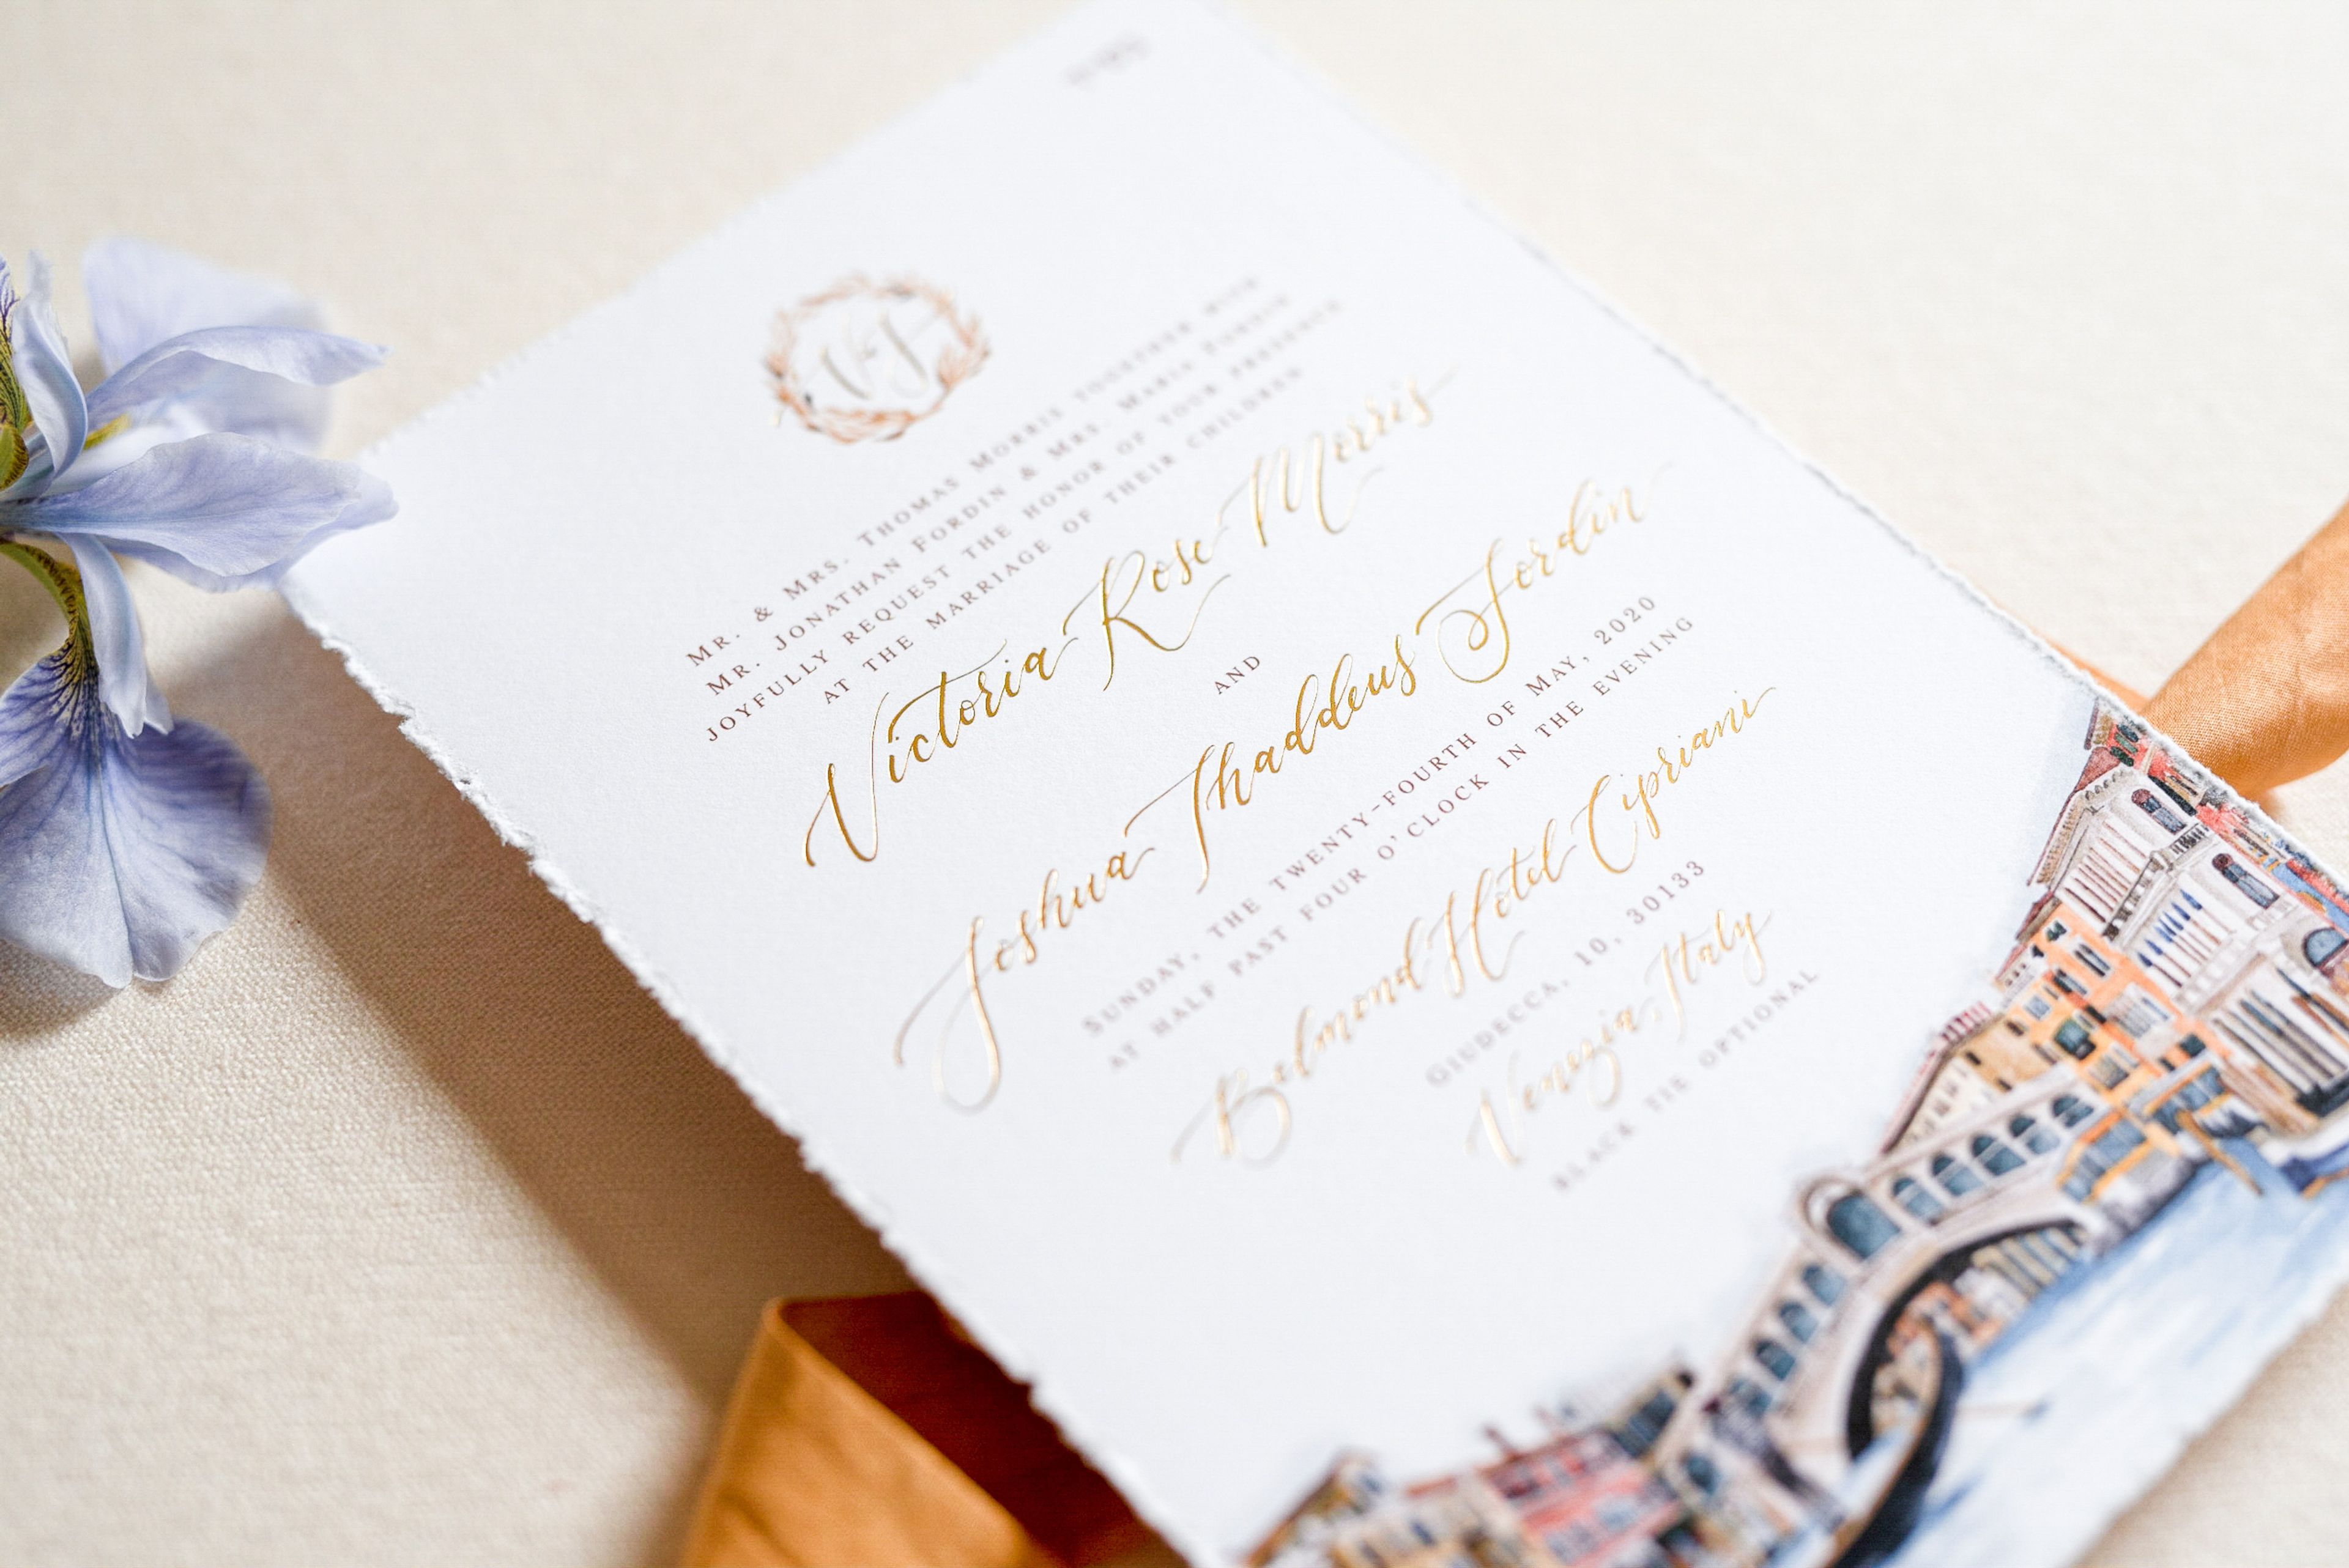 V & J
MR. & MRS. THOMAS MORRIS TOGETHER WITH
MR. JONATHAN FORDIN & MRS. MARIA FORDIN
JOYFULLY REQUEST THE HONOR OF YOUR PRESENCE
AT THE MARRIAGE OF THEIR CHILDREN
Victoria Rose Morris
AND
Joshua Thaddeus Fordin
SUNDAY, THE TWENTY-FOURTH OF MAY, 2020
AT HALF PAST FOUR O'CLOCK IN THE EVENING
Belmond Hotel Cipriani
GIUDECCA, 10, 30133
Venezia, Italy
BLACK TIE OPTIONAL